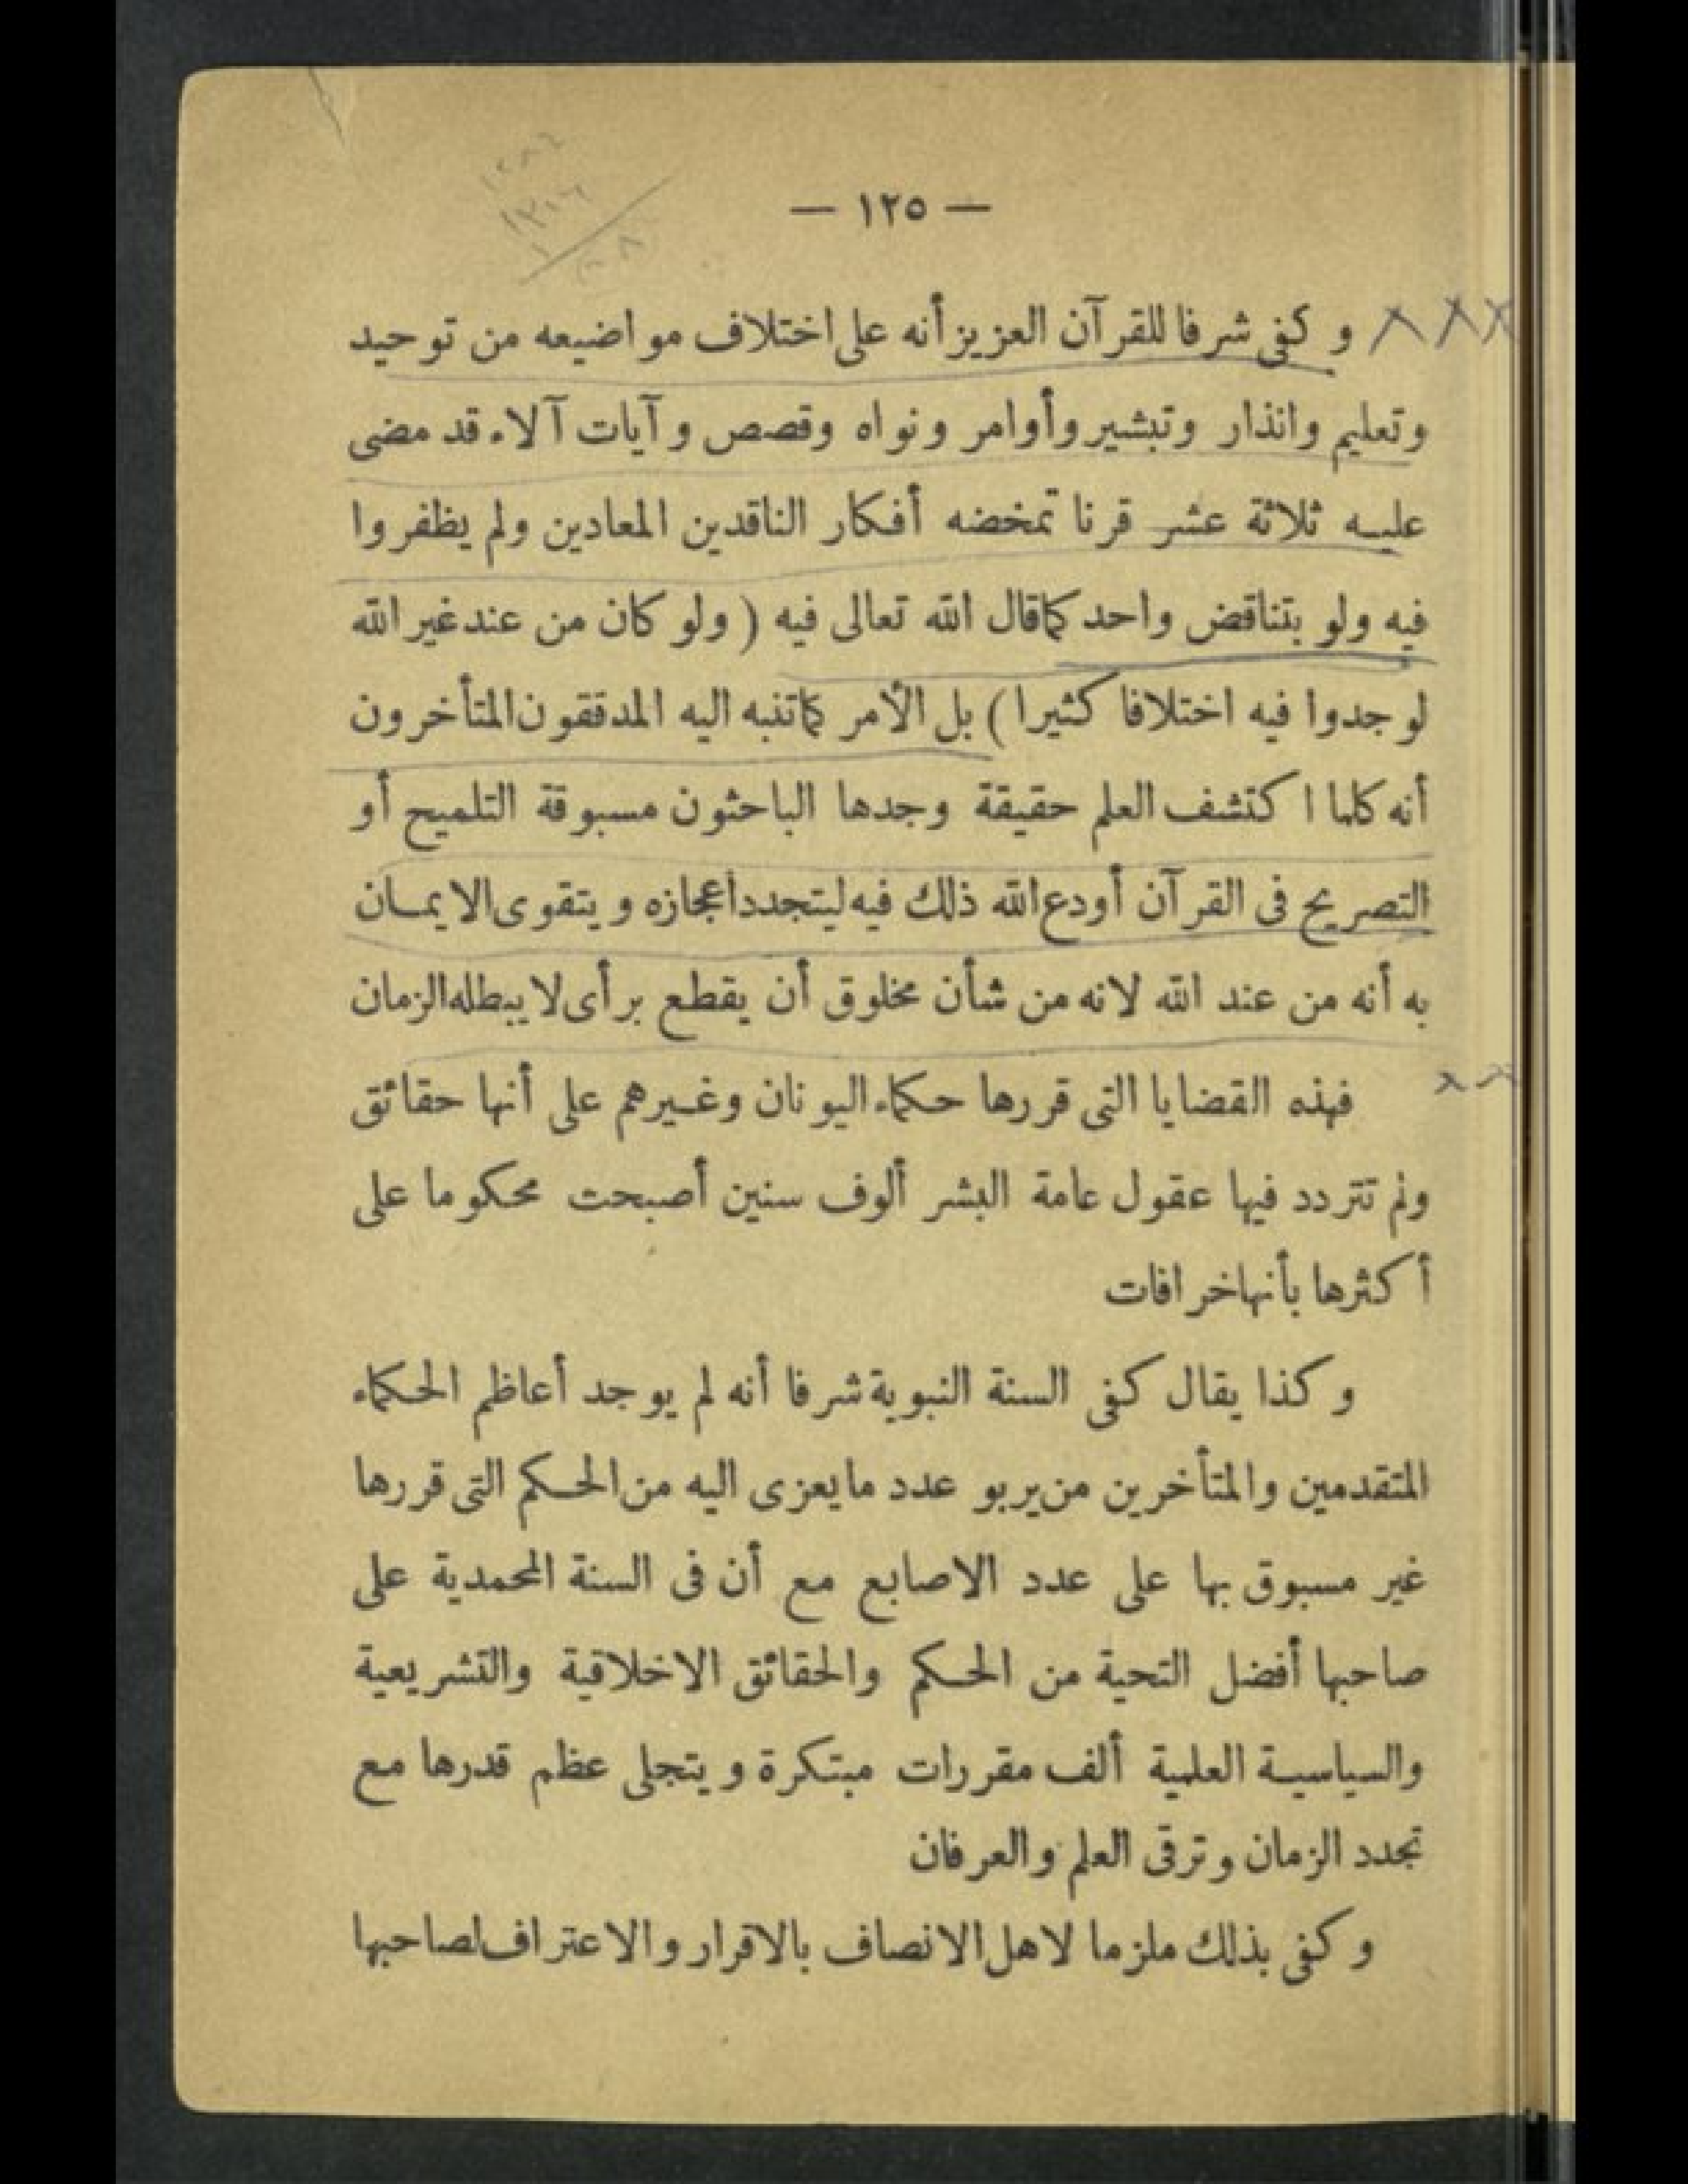 — ١٢٥ —
وكفى شرفا للقرآن العزيز أنه على اختلاف مواضيعه من توحيد
وتعليم وانذار وتبشير وأوامر ونواه وقصص وآيات آلاء قد مضى
عليه ثلاثة عشر قرنا تمخضه أفكار الناقدين المعادين ولم يظفروا
فيه ولو بتناقض واحد كما قال الله تعالى فيه ( ولو كان من عند غير الله
لوجدوا فيه اختلافا كثيرا ) بل الأمر كما تنبه اليه المدققون المتأخرون
أنه كلما اكتشف العلم حقيقة وجدها الباحثون مسبوقة التلميح أو
التصريح فى القرآن أودع الله ذلك فيه ليتجدد اعجازه ويتقوى الايمان
به أنه من عند الله لانه من شأن مخلوق أن يقطع برأى لا يبطله الزمان
فهذه القضايا التى قررها حكماء اليونان وغيرهم على أنها حقائق
ولم تتردد فيها عقول عامة البشر ألوف سنين أصبحت محكوما على
أكثرها بأنها خرافات
وكذا يقال كفى السنة النبوية شرفا أنه لم يوجد أعاظم الحكماء
المتقدمين والمتأخرين من يربو عدد ما يعزى اليه من الحكم التى قررها
غير مسبوق بها على عدد الاصابع مع أن فى السنة المحمدية على
صاحبها أفضل التحية من الحكم والحقائق الاخلاقية والتشريعية
والسياسية العلمية ألف مقررات مبتكرة ويتجلى عظم قدرها مع
تجدد الزمان وترقى العلم والعرفان
وكفى بذلك ملزما لاهل الانصاف بالاقرار والاعتراف لصاحبها